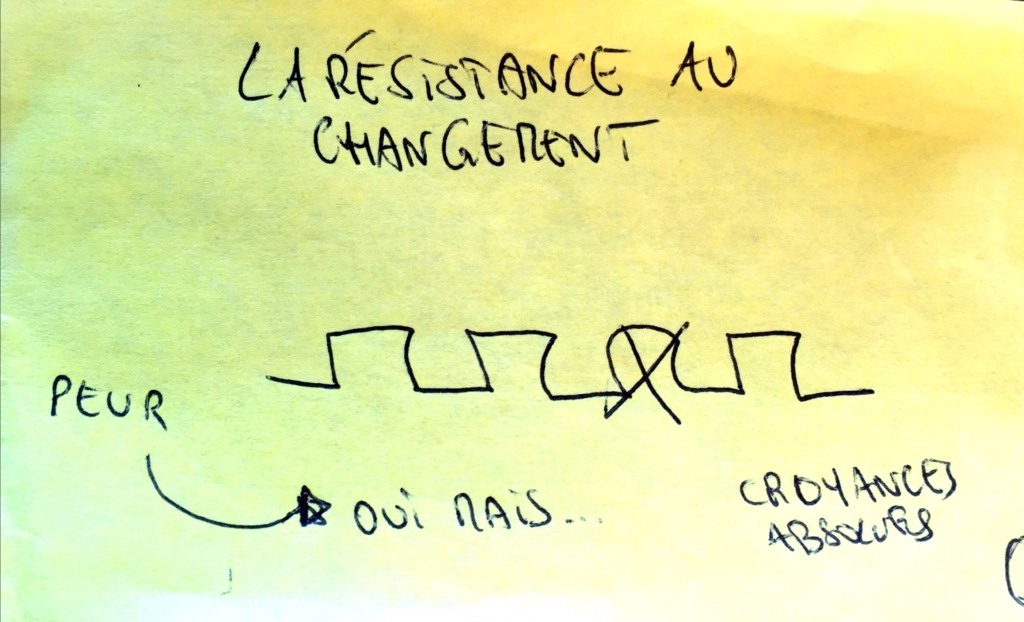 LA RÉSISTANCE AU
CHANGEMENT
PEUR
OUI MAIS...
CROYANCES
ABSOLUES